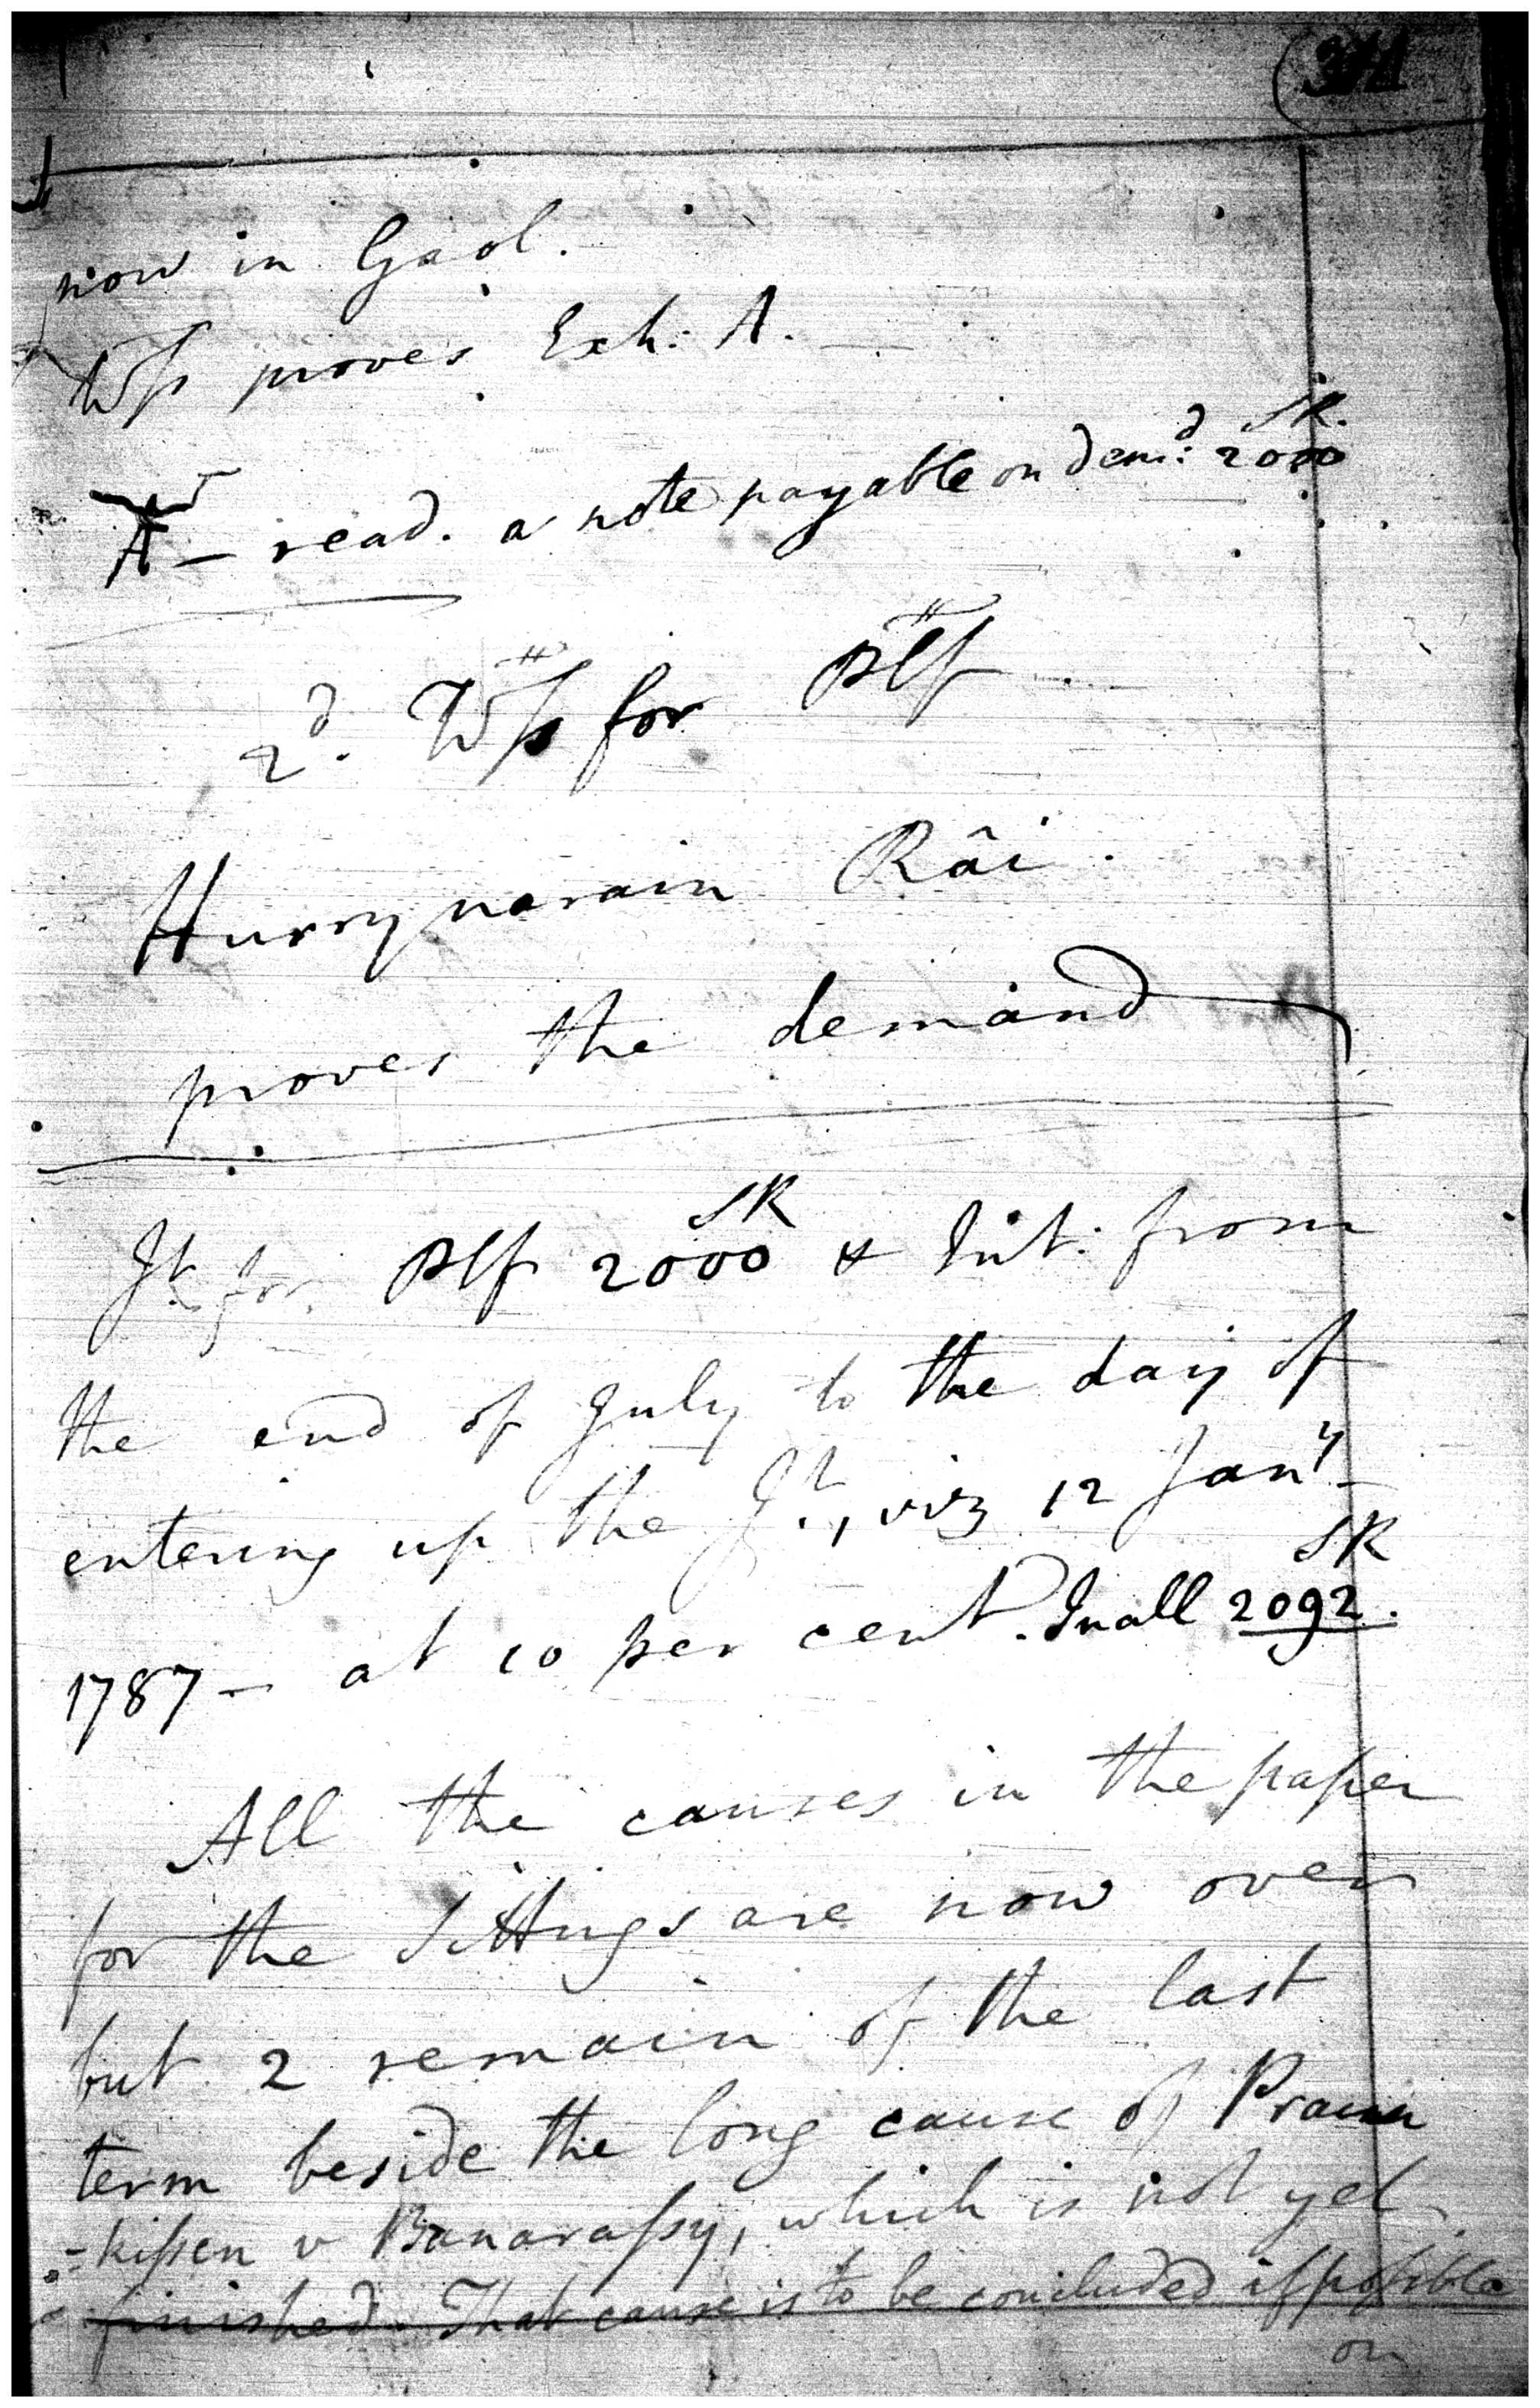 now in Gaol.
Wſs proves Exh: A.
A — read. a note payable on dem:d SR. 2000
2d. Wſs for Plf
Hurrynarain Râi.
proves the demand
Jt. for Plf SR 2000 & Int: from
the end of July to the day of
entering up the Jt., viz 12 Jany
1787 — at 10 per cent. In all SR 2092.
All the causes in the paper
for the Sittings are now over
but 2 remain of the last
term beside the long cause of Praun
=kiſsen v Banaraſsy, which is not yet
finished. That cause is to be concluded if poſsible
on